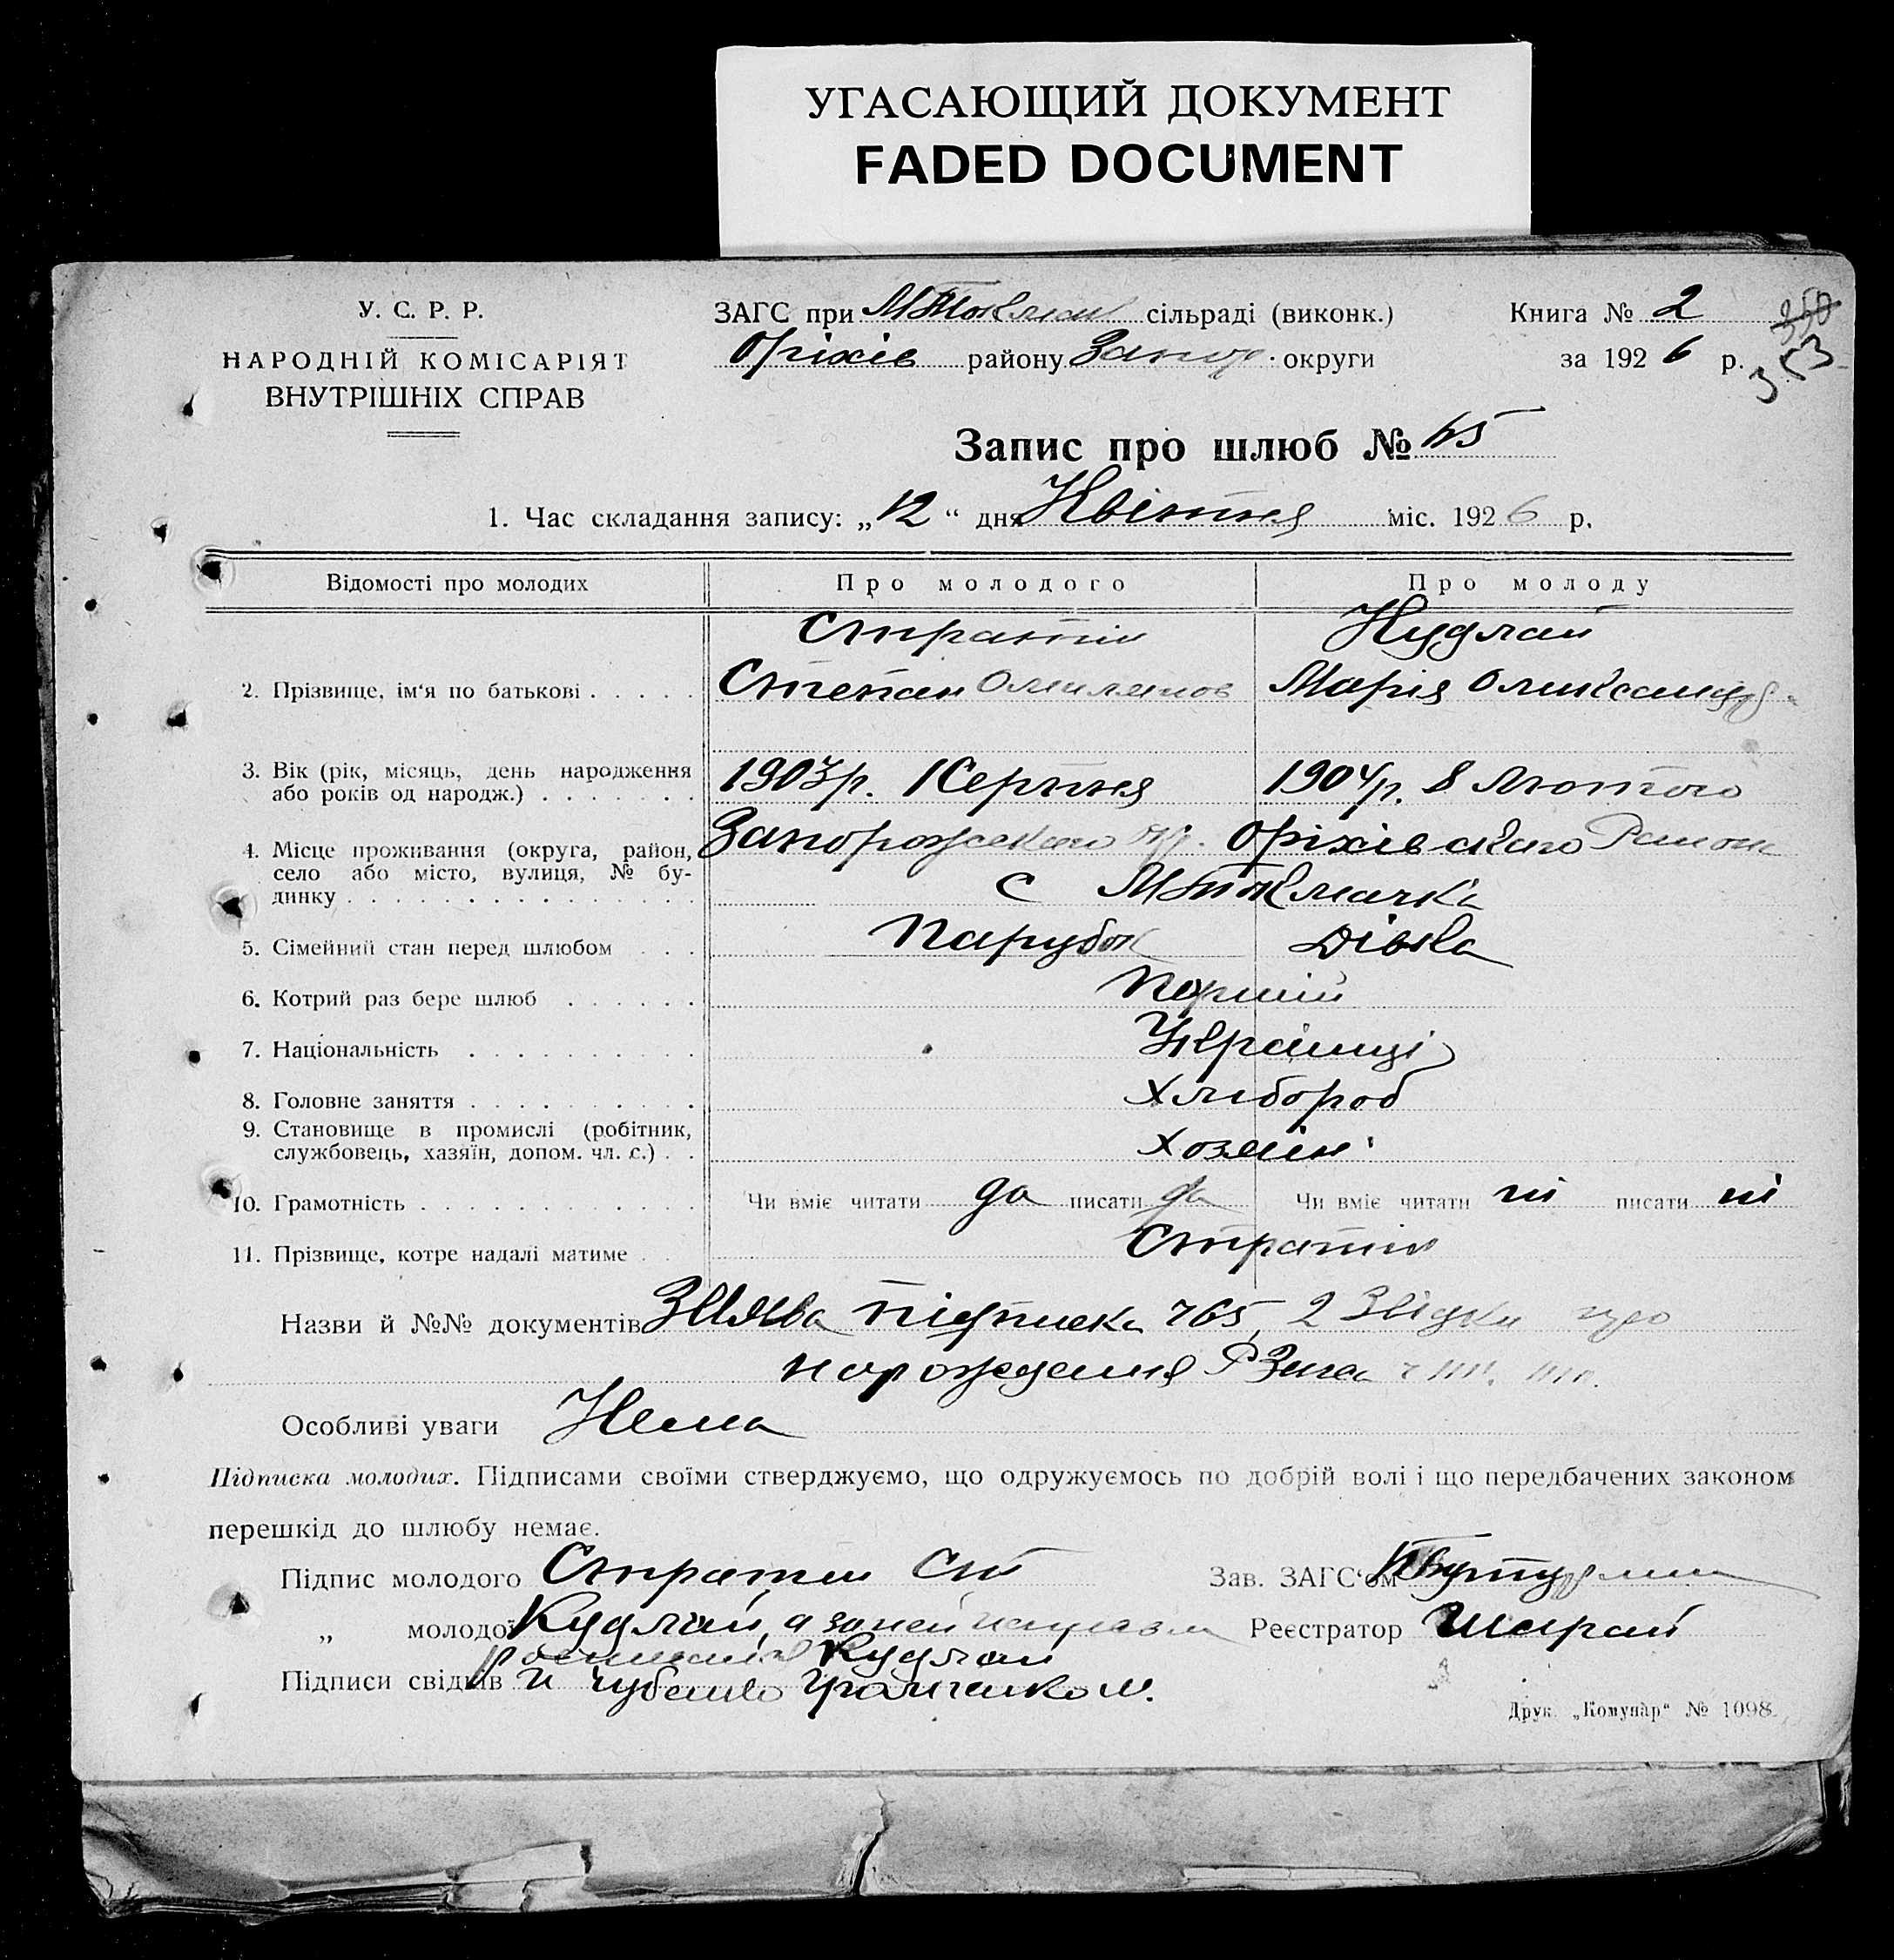 УГАСАЮЩИЙ ДОКУМЕНТ
FADED DOCUMENT
У. С. Р. Р.
НАРОДНІЙ КОМІСАРІЯТ
ВНУТРІШНІХ СПРАВ
ЗАГС при МТокмац сільраді (виконк.)
Оріхів району Запор. округи
Книга № 2
за 1926 р.
350
353
Запис про шлюб № 45
1. Час складання запису: „12“ дня Квітня міс. 1926 р.
Відомості про молодих Про молодого Про молоду
Стратій Кудлай
2. Прізвище, ім‘я по батькові Степан Омилянов Марія Олександр
3. Вік (рік, місяць, день народження
або років од народж.) 1903р. 1 Серпня 1904р. 8 Лютого
4. Місце проживання (округа, район,
село або місто, вулиця, № бу-
динку
Запорожського Окр. Оріхівского Району
с МТокмачка
5. Сімейний стан перед шлюбом Парубок Дівка
6. Котрий раз бере шлюб Перший
7. Національність Українці
8. Головне заняття Хлибороб
9. Становище в промислі (робітник,
службовець, хазяїн, допом. чл. с.) Хозяін
10. Грамотність Чи вміє читати да писати да Чи вміє читати ні писати ні
11. Прізвище, котре надалі матиме Стратій
Назви й №№ документів Заява підписка 765, 2 Звідки про
нарождения РЗагса
Особливі уваги Нема
Підписка молодих. Підписами своїми стверджуємо, що одружуємось по добрій волі і що передбачених законом
перешкід до шлюбу немає.
Підпис молодого Стратий Ст
„ молодої Кудлай, а за неи неграм
росписался Кудлай
Підписи свідків и Чубенко Гранченко М.
Зав. ЗАГС‘ом
Реєстратор Шарай
Друк. „Комунар“ № 1098.